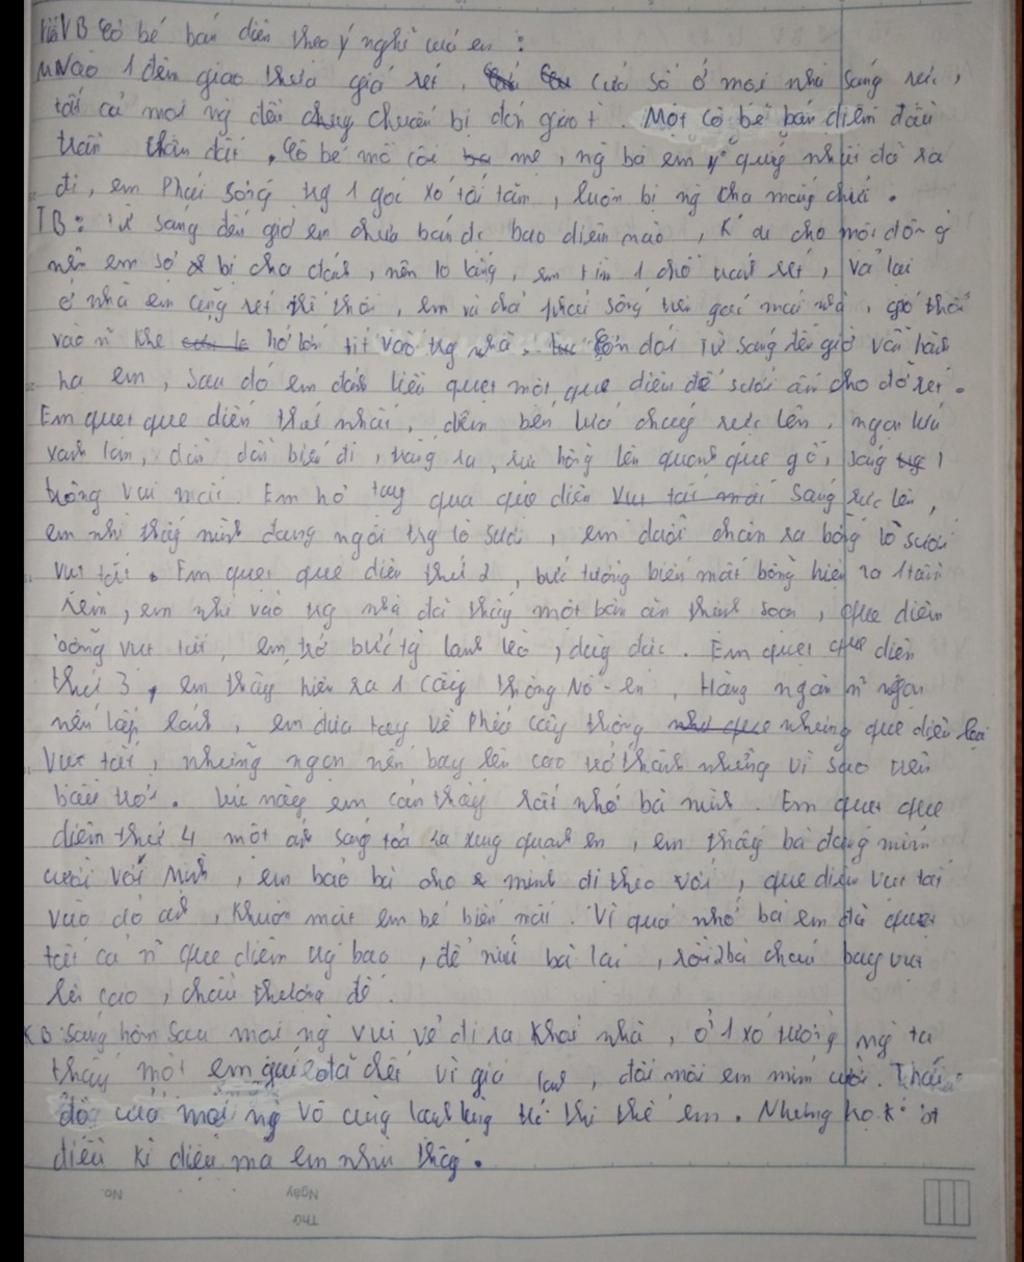 VB Cô bé bán diêm theo ý nghĩ của em :
Vào 1 đêm giao thừa giá rét, cửa sổ ở mọi nhà sáng rực,
tất cả mọi ng đều chuẩn bị đón giao t. Một cô bé bán diêm đầu
trần chân đất, cô bé mồ côi mẹ, ng bà em quý nhất đã ra
đi, em phải sống tg 1 góc xó tối tăm, luôn bị ng cha mắng chửi.
TB: Từ sáng đến giờ em chưa bán đc bao diêm nào, K ai cho một đồng
nên em sợ bị cha đánh, nên lo lắng, em tìm 1 chỗ rét, vả lại
ở nhà em cũng rét thế thôi, em và cha phải sống trên gác mái nhà, gió thổi
vào n khe hở lớn tít vào tg nhà. Cơn đói từ sáng đến giờ vẫn hành
hạ em, sau đó em đánh liều quẹt một que diêm để sưởi ấm cho đỡ rét.
Em quẹt que diêm thứ nhất, diêm bén lửa cháy rực lên, ngọn lửa
xanh lam, dần dần biến đi, trắng ra, rực hồng lên quanh que gỗ, sáng
trông vui mắt. Em hơ tay qua que diêm sáng rực lên,
em nhì thấy mình đang ngồi trg lò sưởi, em duỗi chân ra bỗng lò sưởi
vụt tắt. Em quẹt que diêm thứ 2, bức tường biến mất bỗng hiện ra 1 tấm
rèm, em nhì vào tg nhà đã thấy một bàn ăn thịnh soạn, que diêm
bỗng vụt tắt, em trở bức tg lạnh lẽo, dày đặc. Em quẹt que diêm
thứ 3, em thấy hiện ra 1 cây thông Nô-en, Hàng ngàn n ngọn
nến lấp lánh, em đưa tay về phía cây thông nhưng que diêm lại
vụt tắt, những ngọn nến bay lên cao trở thành những vì sao trên
bầu trời. Lúc này em cảm thấy rất nhớ bà mình. Em quẹt que
diêm thứ 4 một as sáng tỏa ra xung quanh em, em thấy bà đang mỉm
cười với mình, em bảo bà cho mình đi theo với, que diêm vụt tắt
vào đó as, khuôn mặt em bé biến mất. Vì quá nhớ bà em đã quẹt
tất cả n que diêm tg bao, để níu bà lại, rồi 2 bà cháu bay vụt
lên cao, chầu thượng đế.
KB: Sáng hôm sau mọi ng vui vẻ đi ra khỏi nhà, ở 1 xó tường ng ta
thấy một em gái đã chết vì giá lạnh, đôi môi em mỉm cười. Thái
độ của mọi ng vô cùng lạnh lùng thi thể em. Nhưng họ k
điều kì diệu mà em nhìn thấy.
Ngày
No.
Thứ